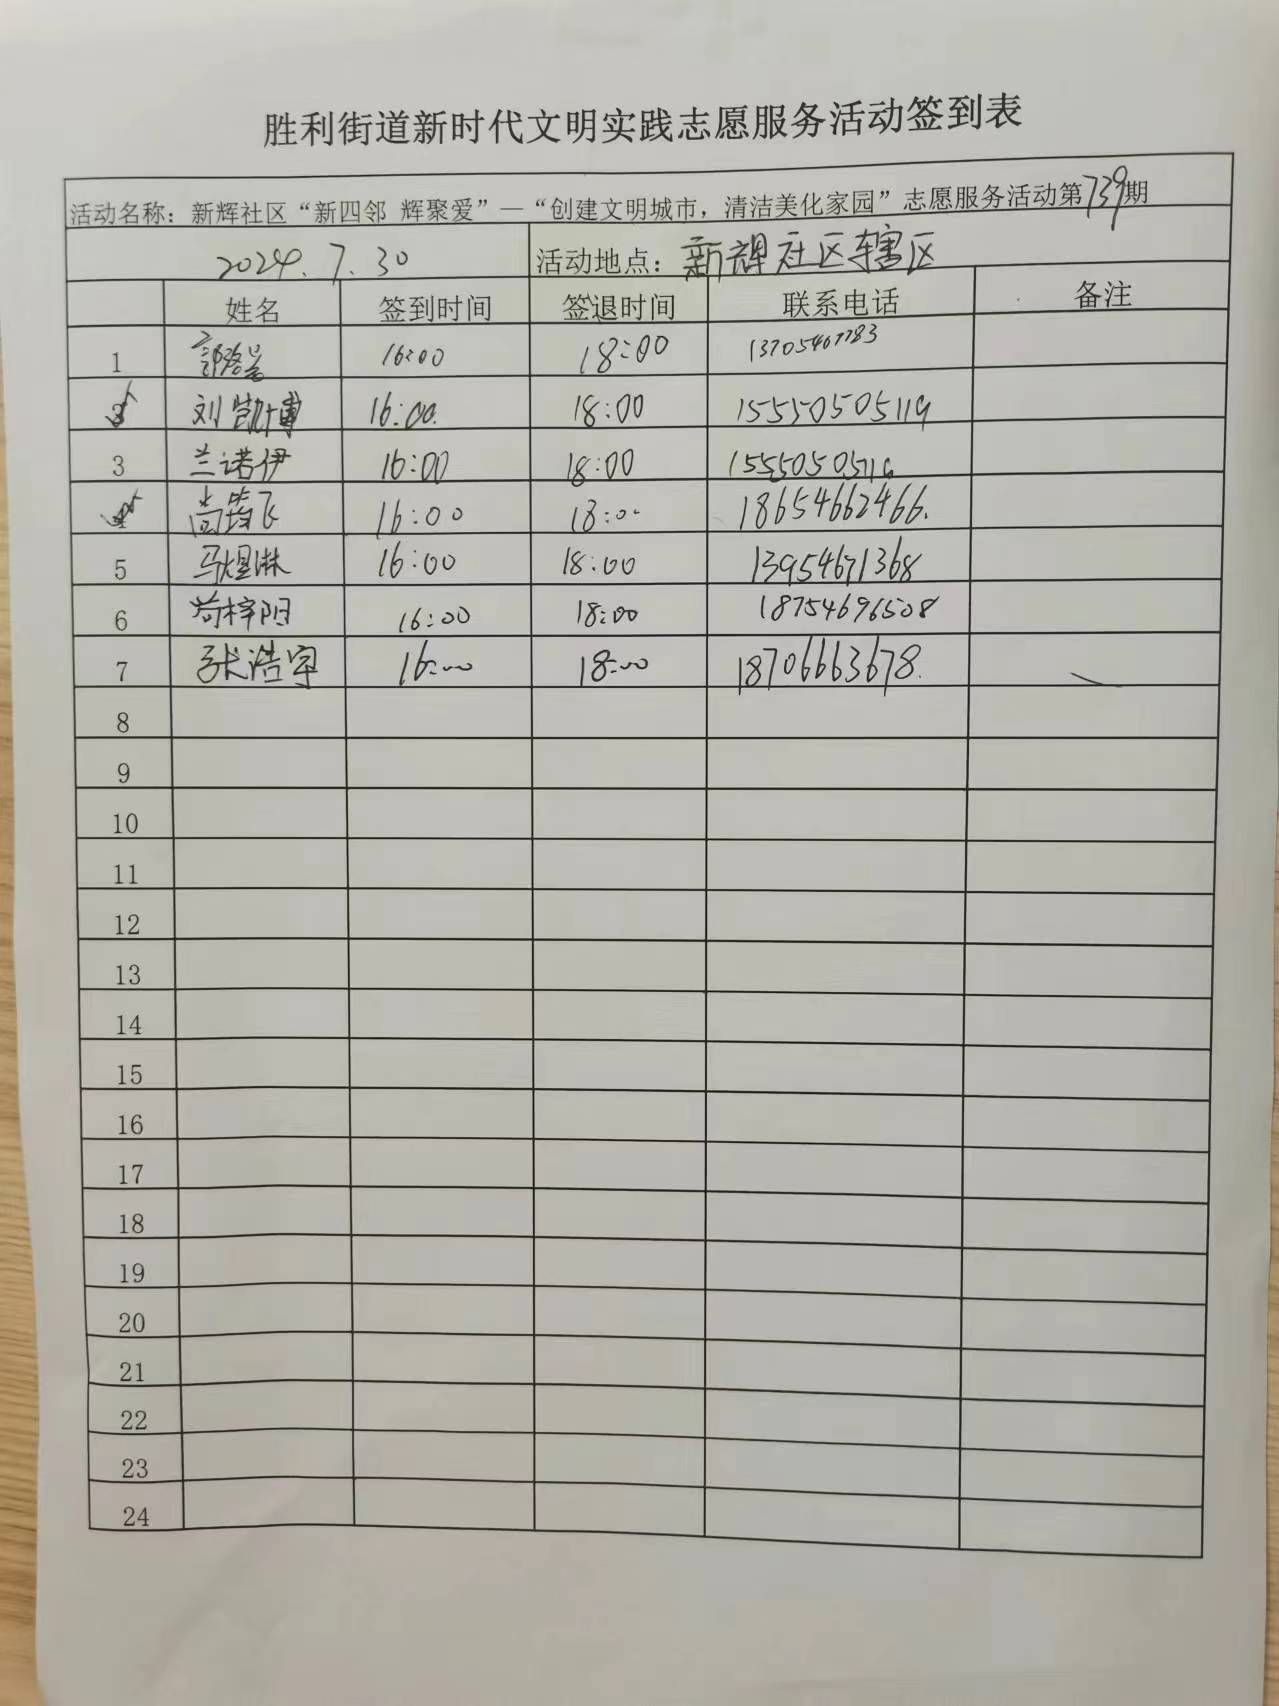 胜利街道新时代文明实践志愿服务活动签到表
活动名称：新辉社区“新四邻 辉聚爱”—“创建文明城市，清洁美化家园”志愿服务活动第739期
2024.7.30 活动地点：新辉社区辖区
姓名 签到时间 签退时间 联系电话 备注
1 16:00 18:00 13705467783
刘凯博 16:00 18:00 15550505119
3 兰诺伊 16:00 18:00
4 尚筠飞 16:00 18:00 18654662466.
5 马煜淋 16:00 18:00 13954671368
6 苟梓阳 16:00 18:00 18754696508
7 张浩宇 16:00 18:00 18706663678.
8
9
10
11
12
13
14
15
16
17
18
19
20
21
22
23
24